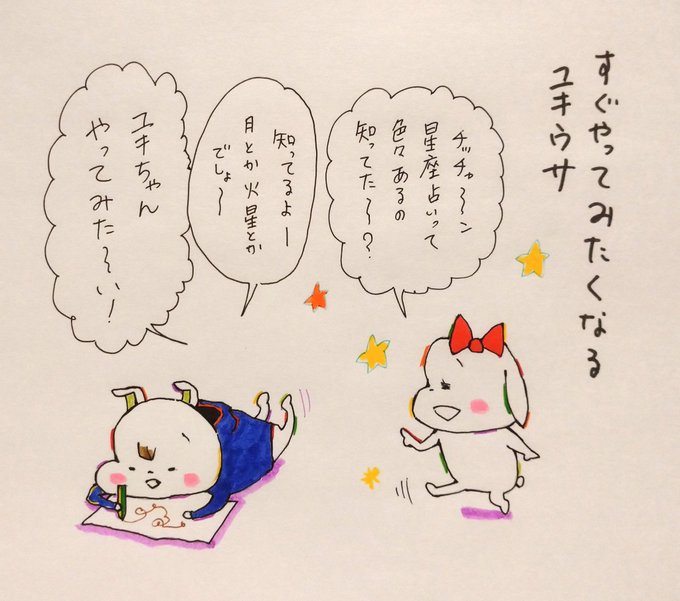 すぐやってみたくなる
ユキウサ
チッチャ〜〜ン
星座占いって
色々あるの
知ってた〜〜?
知ってるよー
月とか火星とか
でしょ〜
ユキちゃん
やってみた〜〜い!